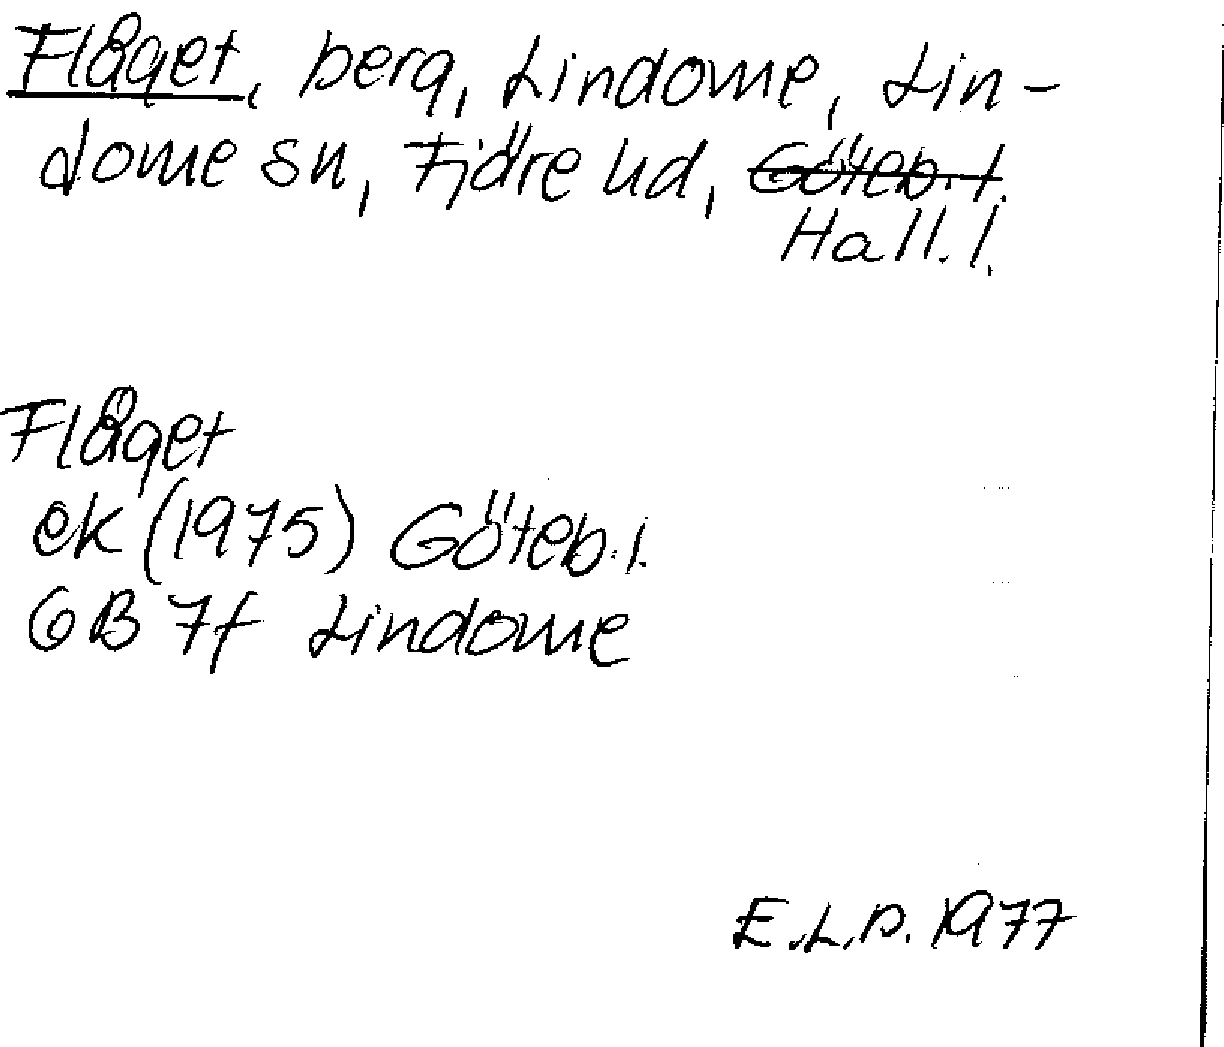 Flåget, berg, Lindome, Lin-
dome sn, Fjäre hd, Göteb. l.
Hall. l.
Flåget
ek (1975) Göteb. l.
6B 7f Lindome
E.L.P. 1977